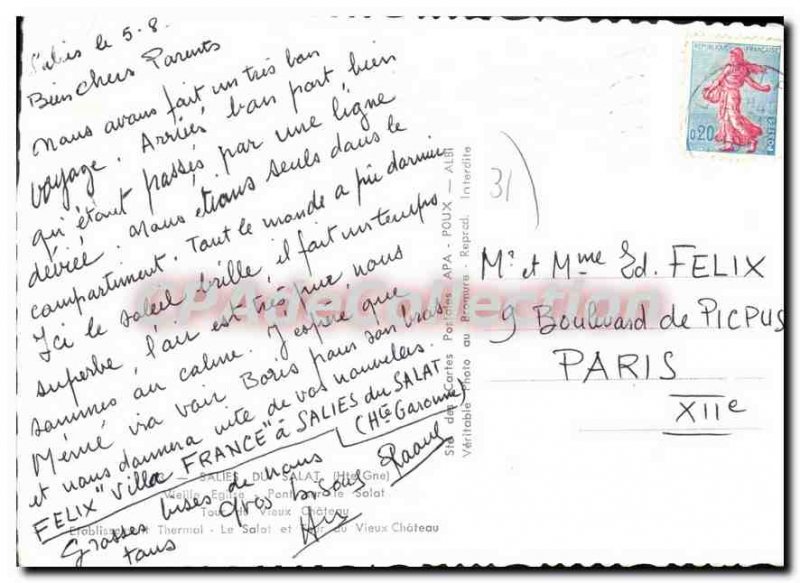 Salies le 5.8.
Bien chers Parents
Nous avons fait un très bon
voyage. Arrivés bon port bien
qu'étant passés par une ligne
déviée. Nous étions seuls dans le
compartiment. Tout le monde a pu dormir
Ici le soleil brille, il fait un temps
superbe, l'air est très pur nous
sommes au calme. J'espère que
Mémé va voir Boris pour son bras
et nous donnera vite de vos nouvelles.
FELIX "Villa FRANCE" à SALIES du SALAT
(Hte Garonne)
Grosses bises de nous
tous
Gros bisous
Raoul
SALIES DU SALAT (Hte Gne)
Vieille Eglise - Pont sur le Salat
Tour du Vieux Château
Etablissement Thermal - Le Salat et Tour du Vieux Château
Sté des Cartes Postales APA - POUX - ALBI
Véritable Photo au Bromure - Reprod. Interdite
31
REPUBLIQUE FRANÇAISE
0,20
POSTES
Mr et Mme Ed. FELIX
9 Boulevard de PICPUS
PARIS
XIIe
CPAdeCollection